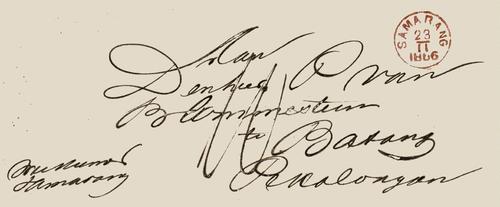 SAMARANG
23
11
1866
Aan
Den heer P van
te Batang
Pekalongan
Samarang